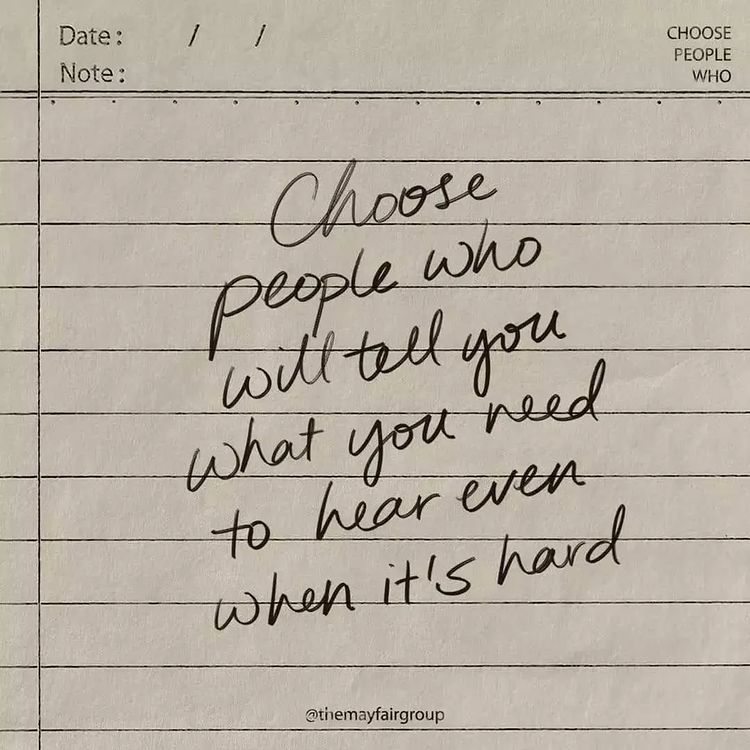 Date: / /
Note:
CHOOSE
PEOPLE
WHO
Choose
people who
will tell you
what you need
to hear even
when it's hard
@themayfairgroup